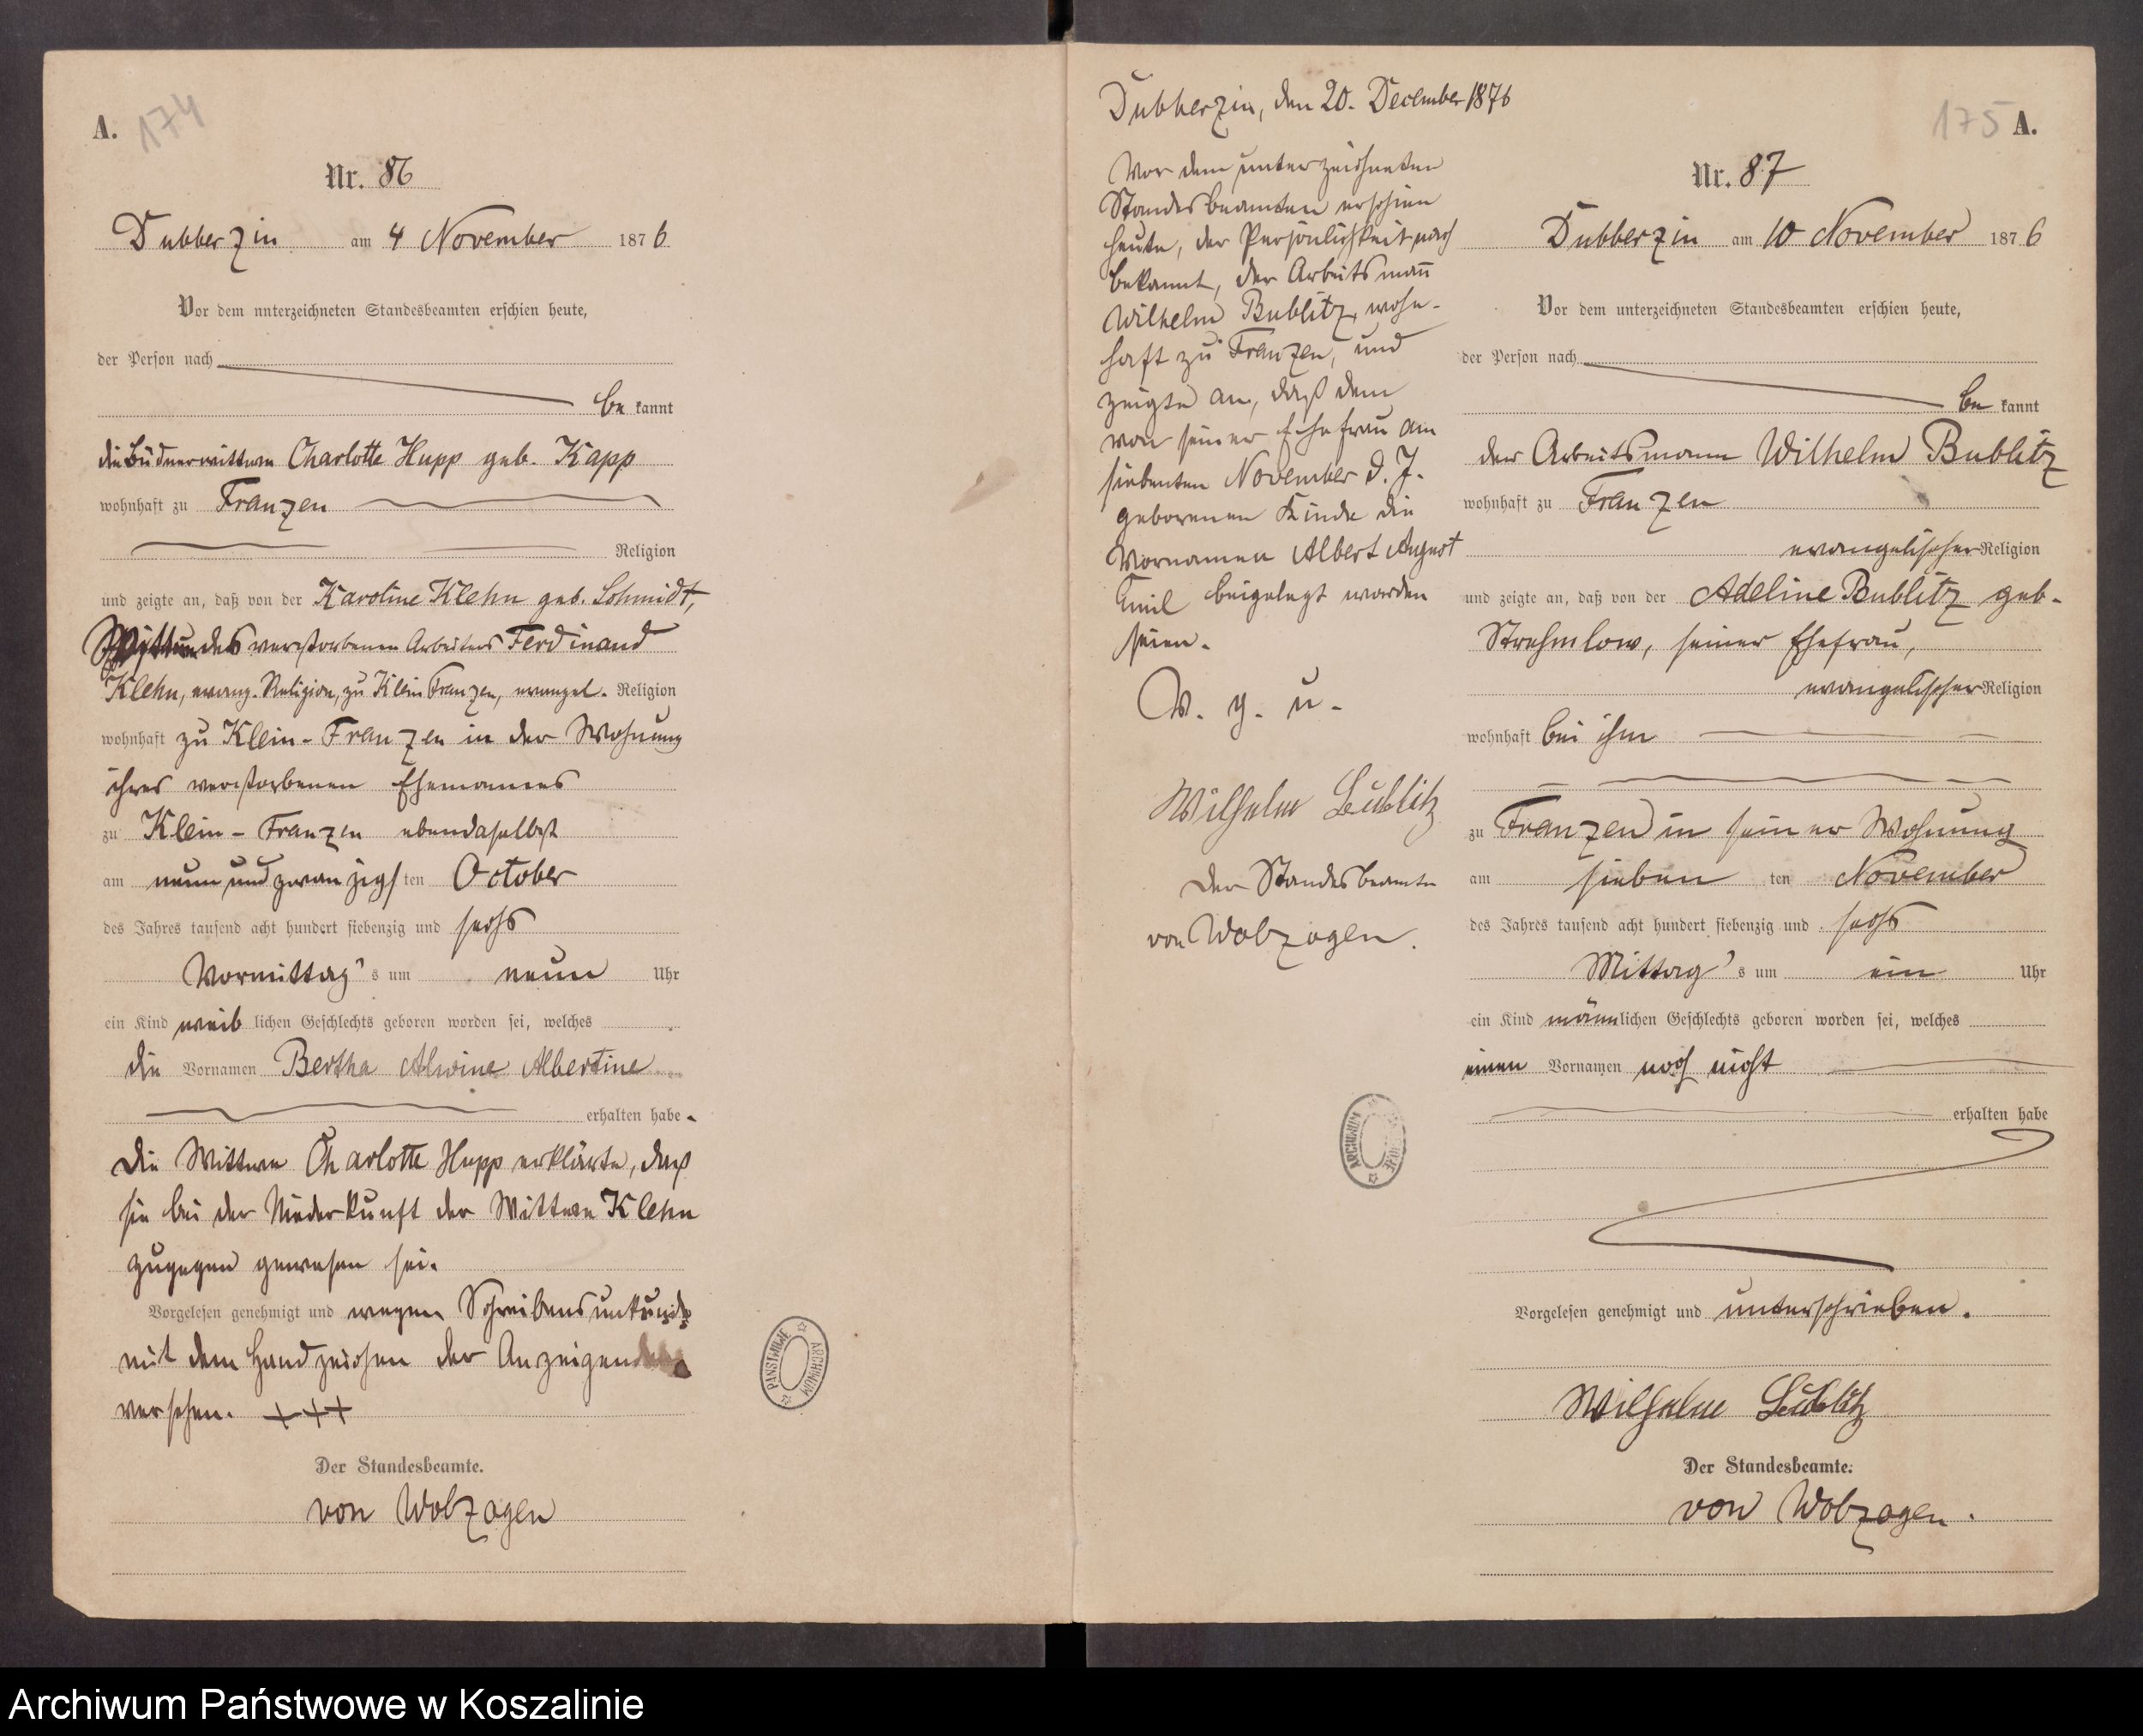 A. 174
Nr. 86
Dubberzin am 4 November 1876
Vor dem unterzeichneten Standesbeamten erschien heute,
der Person nach
be kannt
die Büdnerwittwe Charlotte Hupp geb. Kapp
wohnhaft zu Franzen
Religion
und zeigte an, daß von der Karoline Klehn geb. Schmidt,
Wittwe des verstorbenen Arbeiters Ferdinand
Klehn, evang. Religion, zu Klein Franzen, evangel. Religion
wohnhaft zu Klein-Franzen in der Wohnung
ihres verstorbenen Ehemannes
zu Klein-Franzen ebendaselbst
am neun und zwanzigsten October
des Jahres tausend acht hundert siebenzig und sechs
Vormittag's um neun Uhr
ein Kind weiblichen Geschlechts geboren worden sei, welches
die Vornamen Bertha Alwine Albertine
erhalten habe.
Die Wittwe Charlotte Hupp erklärte, daß
sie bei der Niederkunft der Wittwe Klehn
zugegen gewesen sei.
Vorgelesen genehmigt und wegen Schreibensunkunde
mit dem Handzeichen der Anzeigenden
versehen. +++
Der Standesbeamte.
von Wolzogen
PAŃSTWOWE ARCHIWUM
Dubberzin, den 20. December 1876
Vor dem unterzeichneten
Standesbeamten erschien
heute, der Persönlichkeit nach
bekannt, der Arbeitsmann
Wilhelm Bublitz, wohn-
haft zu Franzen, und
zeigte an, daß dem
von seiner Ehefrau am
siebenten November d. J.
geborenen Kinde die
Vornamen Albert August
Emil beigelegt worden
seien.
V. g. u.
Wilhelm Bublitz
Der Standesbeamte
von Wolzogen.
175 A.
Nr. 87
Dubberzin am 10 November 1876
Vor dem unterzeichneten Standesbeamten erschien heute,
der Person nach
be kannt
der Arbeitsmann Wilhelm Bublitz
wohnhaft zu Franzen
evangelischer Religion
und zeigte an, daß von der Adeline Bublitz geb.
Strehmlow, seiner Ehefrau,
evangelischer Religion
wohnhaft bei ihm
zu Franzen in seiner Wohnung
am siebenten November
des Jahres tausend acht hundert siebenzig und sechs
Mittag's um ein Uhr
ein Kind männlichen Geschlechts geboren worden sei, welches
einen Vornamen noch nicht
erhalten habe
ARCHIWUM
Vorgelesen genehmigt und unterschrieben.
Wilhelm Bublitz
Der Standesbeamte.
von Wolzogen.
Archiwum Państwowe w Koszalinie